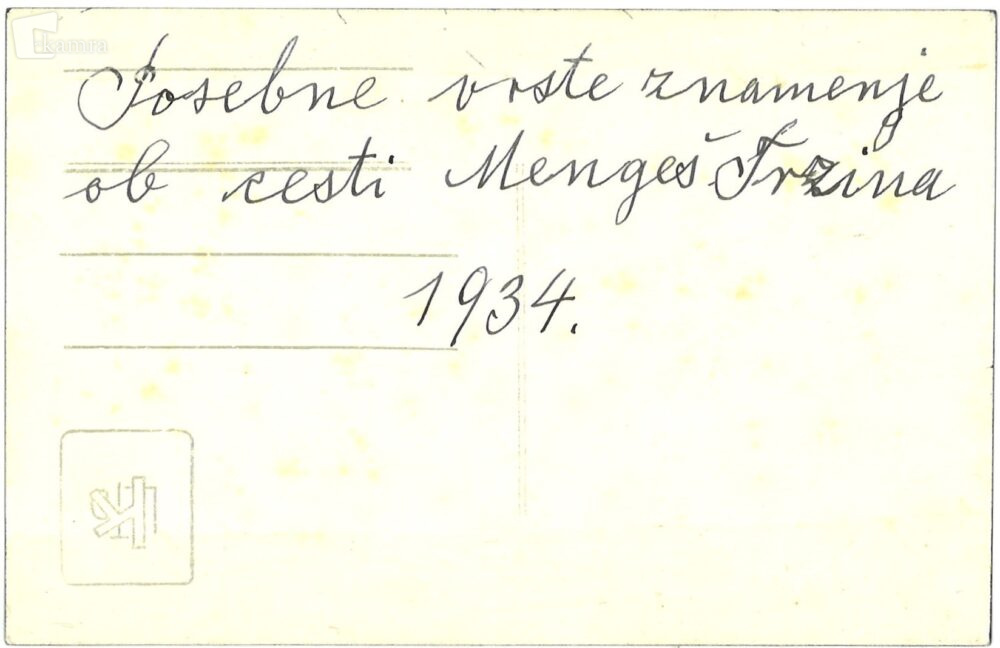 kamra
Posebne vrste znamenje
ob cesti Mengeš Trzina
1934.